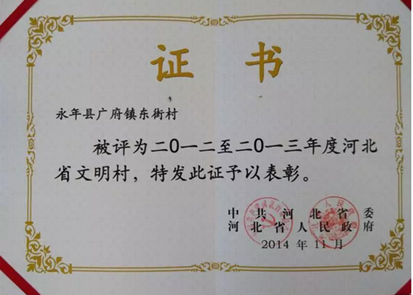 证书
永年县广府镇东街村
被评为二0一二至二0一三年度河北
省文明村，特发此证予以表彰。
中共河北省委
河北省人民政府
2014年11月